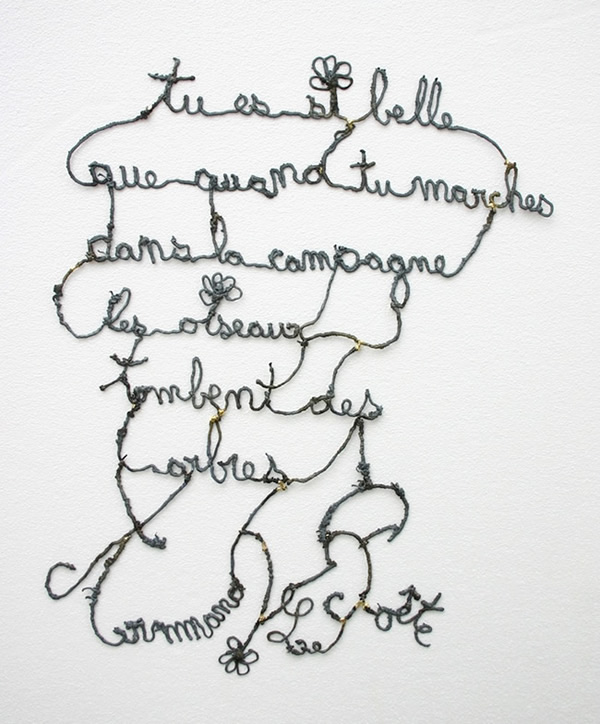 tu es si belle
que quand tu marches
dans la campagne
les oiseaux
tombent des
arbres
Armand
Le Poête